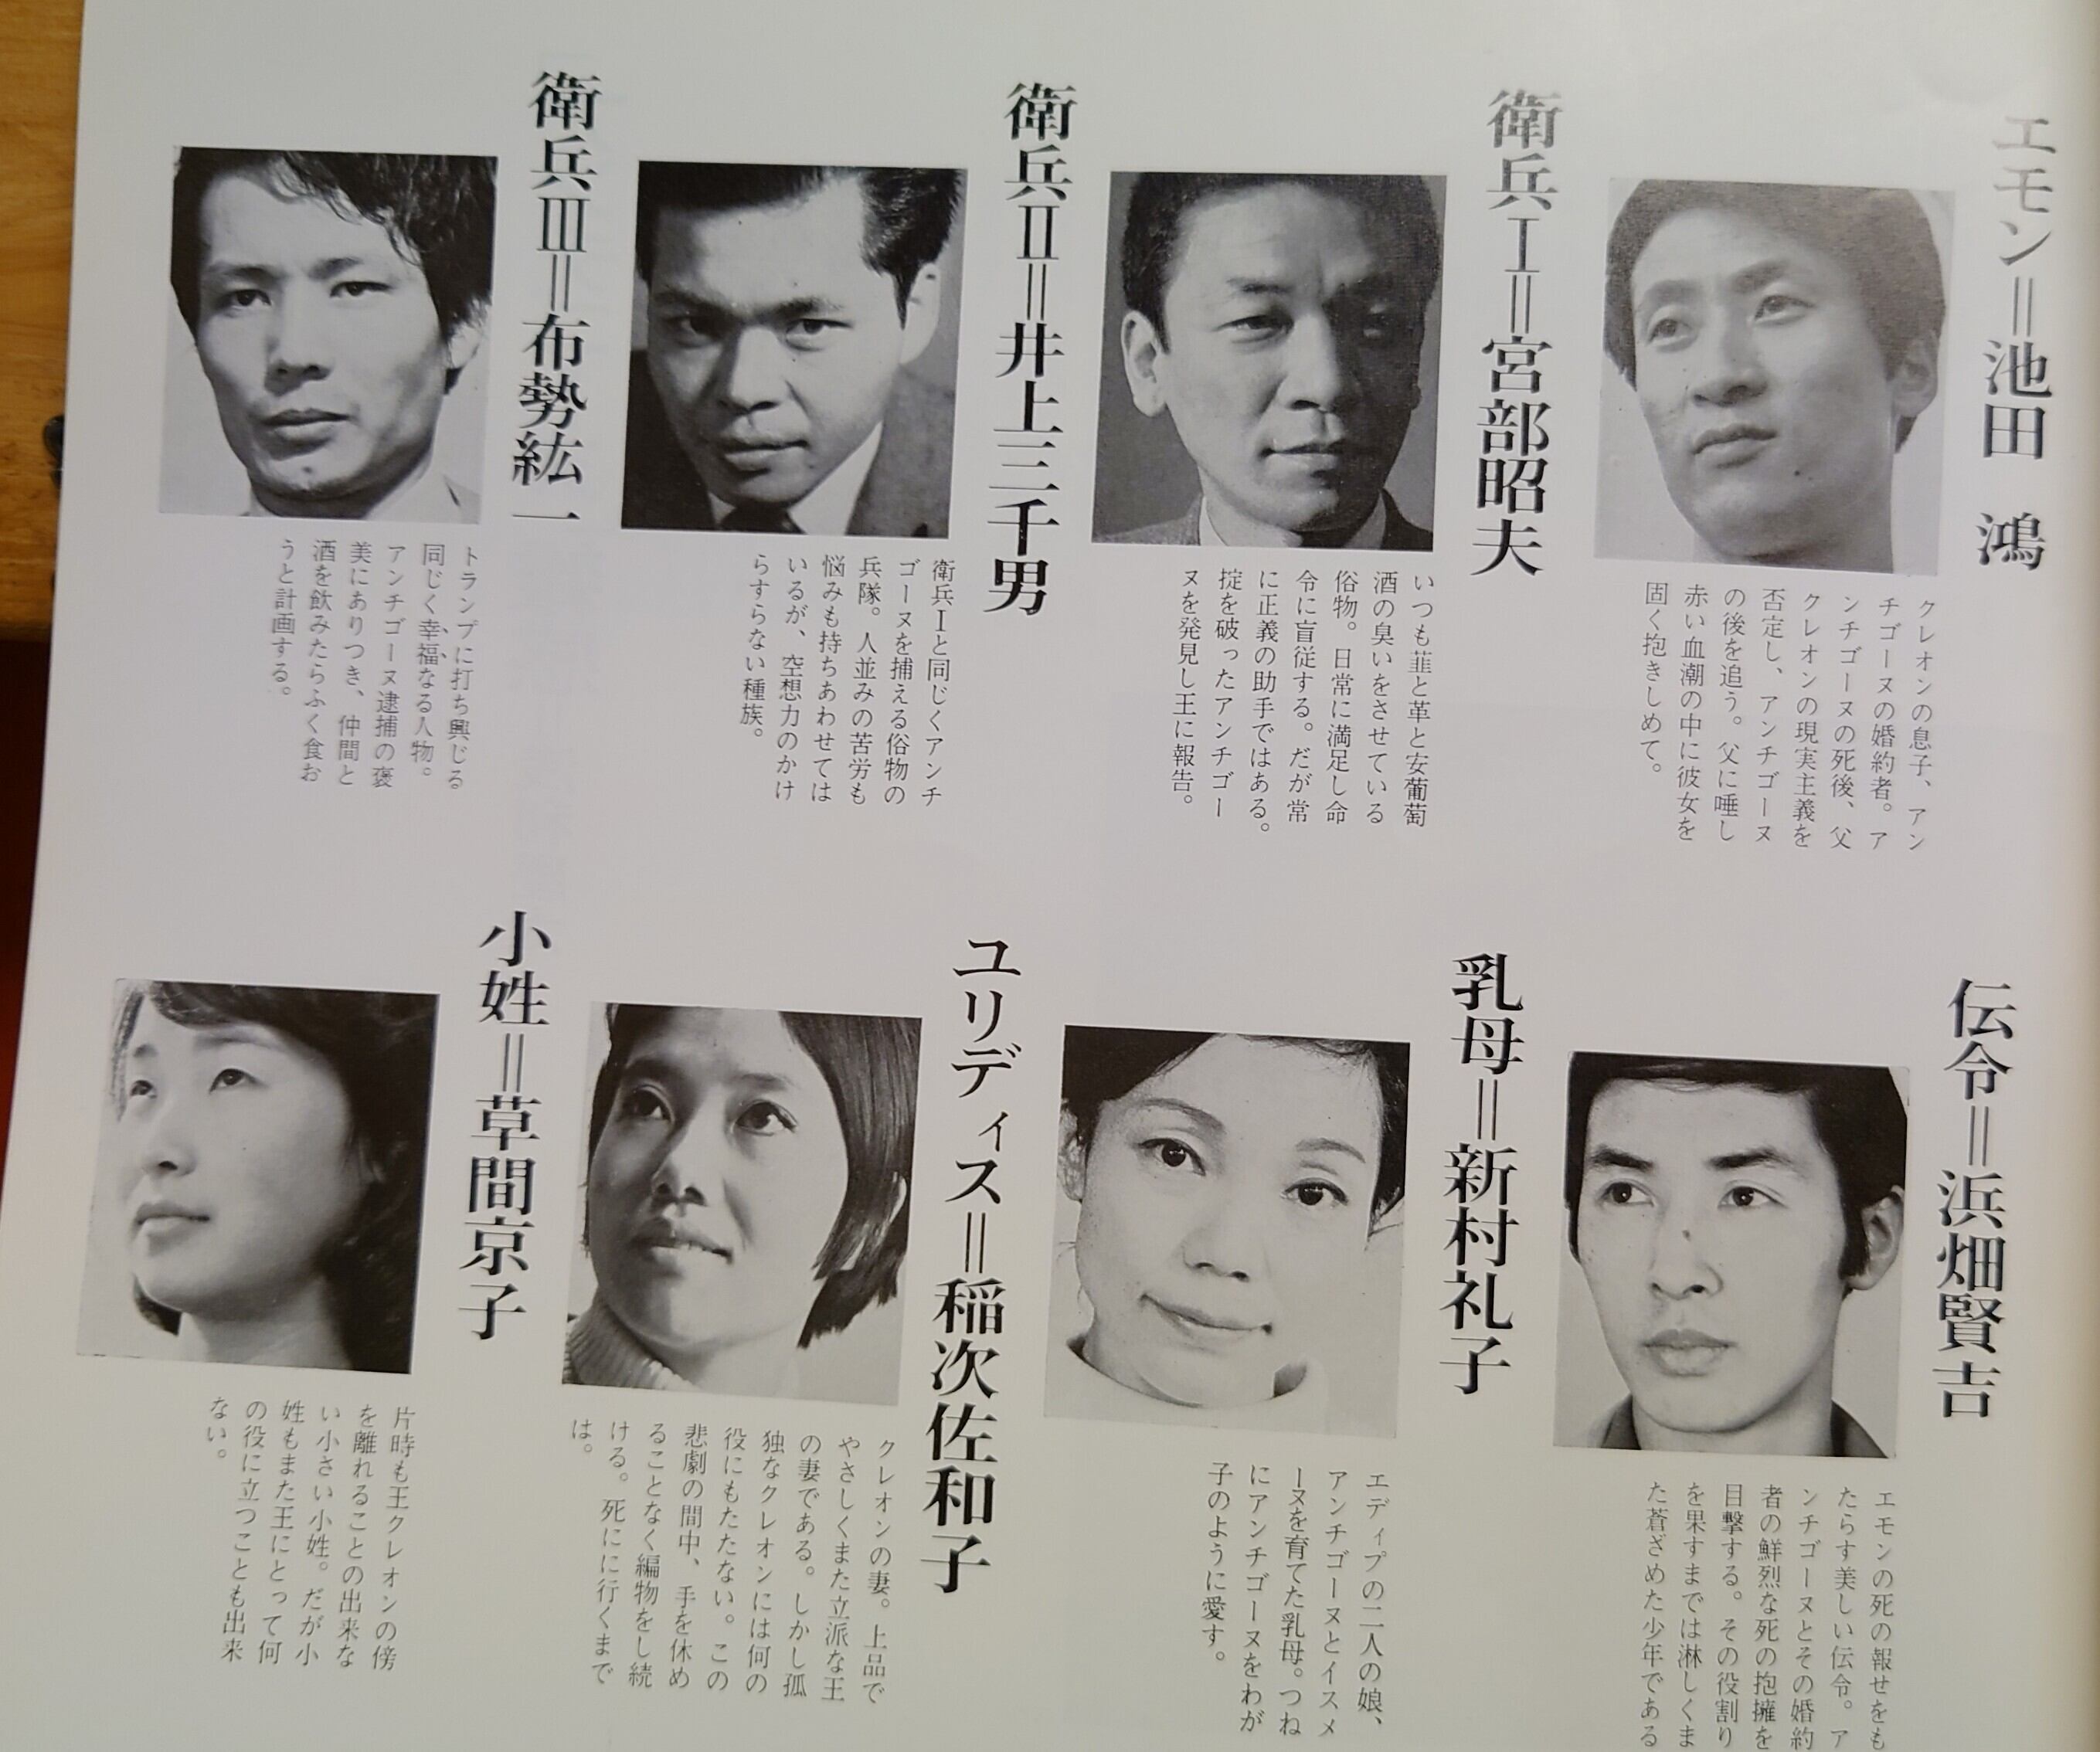 エモン＝池田　鴻
クレオンの息子、アン
チゴーヌの婚約者。ア
ンチゴーヌの死後、父
クレオンの現実主義を
否定し、アンチゴーヌ
の後を追う。父に唾し
赤い血潮の中に彼女を
固く抱きしめて。
衛兵Ⅰ＝宮部昭夫
いつも韮と革と安葡萄
酒の臭いをさせている
俗物。日常に満足し命
令に盲従する。だが常
に正義の助手ではある。
掟を破ったアンチゴー
ヌを発見し王に報告。
衛兵Ⅱ＝井上三千男
衛兵Ⅰと同じくアンチ
ゴーヌを捕える俗物の
兵隊。人並みの苦労も
悩みも持ちあわせては
いるが、空想力のかけ
らすらない種族。
衛兵Ⅲ＝布勢紘一
トランプに打ち興じる
同じく幸福なる人物。
アンチゴーヌ逮捕の褒
美にありつき、仲間と
酒を飲みたらふく食お
うと計画する。
伝令＝浜畑賢吉
エモンの死の報せをも
たらす美しい伝令。ア
ンチゴーヌとその婚約
者の鮮烈な死の抱擁を
目撃する。その役割り
を果すまでは淋しくま
た蒼ざめた少年である
乳母＝新村礼子
エディプの二人の娘、
アンチゴーヌとイスメ
ーヌを育てた乳母。つね
にアンチゴーヌをわが
子のように愛す。
ユリディス＝稲次佐和子
クレオンの妻。上品で
やさしくまた立派な王
の妻である。しかし孤
独なクレオンには何の
役にもたたない。この
悲劇の間中、手を休め
ることなく編物をし続
ける。死にに行くまで
は。
小姓＝草間京子
片時も王クレオンの傍
を離れることの出来な
い小さい小姓。だが小
姓もまた王にとって何
の役に立つことも出来
ない。